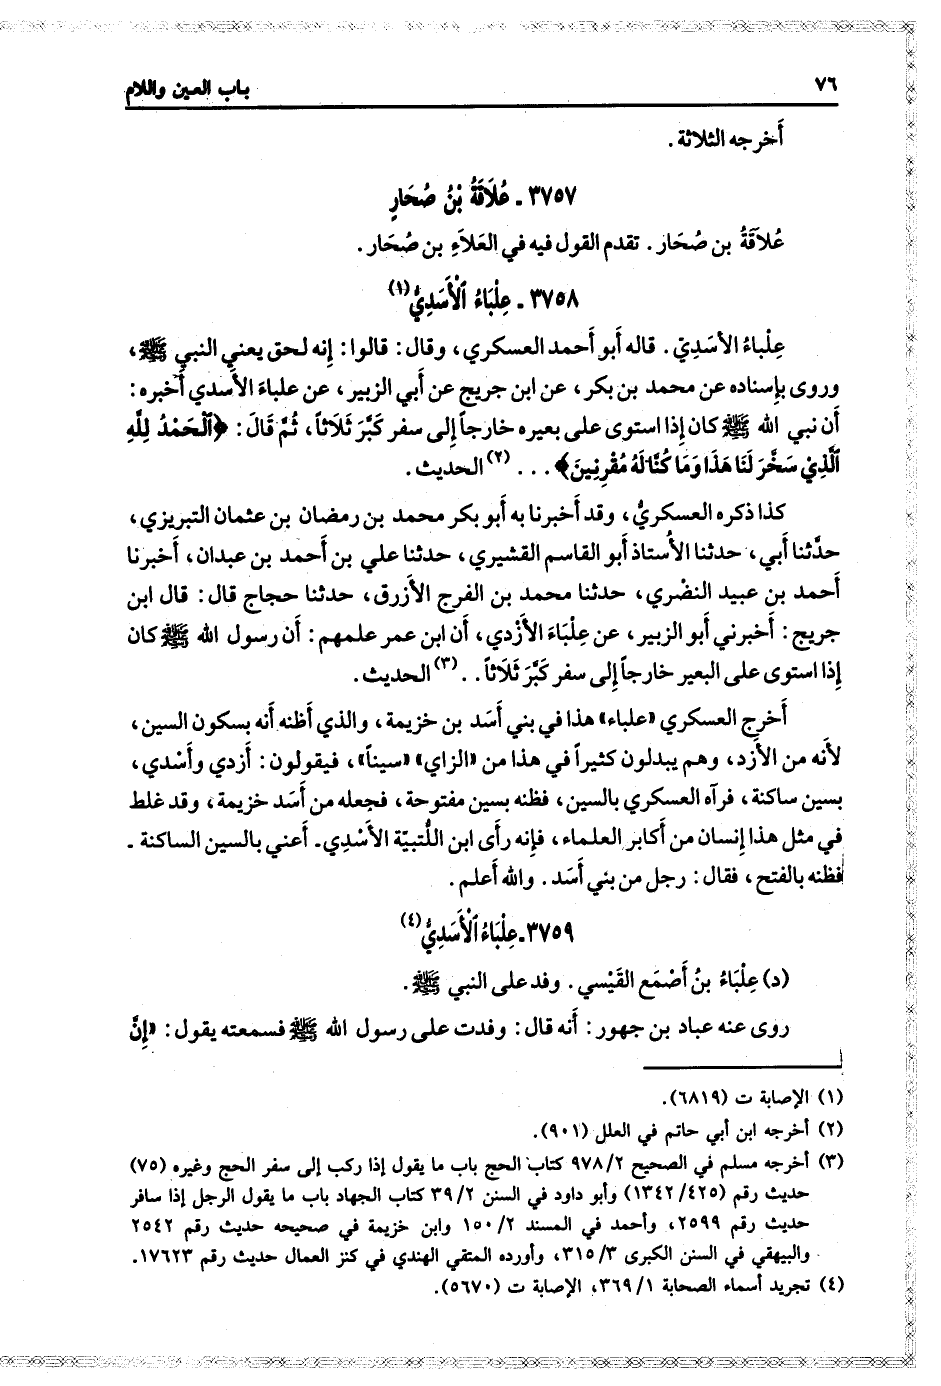 ٧٦ باب العين واللام
أَخرجه الثلاثة.
٣٧٥٧ ـ عُلَاقَةُ بْنُ صُحَارٍ
عُلاَقَةُ بن صُحَار. تقدم القول فيه في العَلاَءِ بن صُحَار.
٣٧٥٨ ـ عِلْبَاءُ ٱلْأَسَدِيُّ(١)
عِلْبَاءُ الأَسَدِيّ. قاله أَبو أَحمد العسكري، وقال: قالوا: إِنه لحق يعني النبي ﷺ،
وروى بإِسناده عن محمد بن بكر، عن ابن جريج عن أَبي الزبير، عن علباءَ الأَسدي أَخبره:
أَن نبي الله ﷺ كان إِذا استوى على بعيره خارجاً إِلى سفر كَبَّرَ ثَلَاثاً، ثُمَّ قَالَ: ﴿ٱلْحَمْدُ لِلَّهِ
ٱلَّذِيْ سَخَّرَ لَنَا هَذَا وَمَا كُنَّا لَهُ مُقْرِنِينَ﴾ . . . (٢) الحديث.
كذا ذكره العسكريُّ، وقد أَخبرنا به أَبو بكر محمد بن رمضان بن عثمان التبريزي،
حدَّثنا أَبي، حدثنا الأُستاذ أَبو القاسم القشيري، حدثنا علي بن أَحمد بن عبدان، أَخبرنا
أَحمد بن عبيد النضْري، حدثنا محمد بن الفرج الأَزرق، حدثنا حجاج قال: قال ابن
جريج: أَخبرني أَبو الزبير، عن عِلْبَاءَ الأَزْدي، أَن ابن عمر علمهم: أَن رسول الله ﷺ كان
إِذا استوى على البعير خارجاً إِلى سفر كَبَّرَ ثَلَاثاً. . (٣) الحديث.
أَخرج العسكري «علباء» هذا في بني أَسَد بن خزيمة، والذي أَظنه أَنه بسكون السين،
لأَنه من الأَزد، وهم يبدلون كثيراً في هذا من «الزاي» «سيناً»، فيقولون: أَزدي وأَسْدي،
بسين ساكنة، فرآه العسكري بالسين، فظنه بسين مفتوحة، فجعله من أَسَد خزيمة، وقد غلط
في مثل هذا إِنسان من أَكابر العلماء، فإِنه رأَى ابن اللُّتبيّة الأَسْدِي ـ أَعني بالسين الساكنة ـ
فظنه بالفتح، فقال: رجل من بني أَسَد. والله أَعلم.
٣٧٥٩ ـ عِلْبَاءُ ٱلْأَسَدِيُّ(٤)
(د) عِلْبَاءُ بنُ أَصْمَع القَيْسي. وفد على النبي ﷺ.
روى عنه عباد بن جهور: أَنه قال: وفدت على رسول الله ﷺ فسمعته يقول: «إِنَّ
(١) الإصابة ت (٦٨١٩).
(٢) أخرجه ابن أبي حاتم في العلل (٩٠١).
(٣) أخرجه مسلم في الصحيح ٢/ ٩٧٨ كتاب الحج باب ما يقول إذا ركب إلى سفر الحج وغيره (٧٥)
حديث رقم (٤٢٥/ ١٣٤٢) وأبو داود في السنن ٢/ ٣٩ كتاب الجهاد باب ما يقول الرجل إذا سافر
حديث رقم ٢٥٩٩، وأحمد في المسند ٢/ ١٥٠ وابن خزيمة في صحيحه حديث رقم ٢٥٤٢
والبيهقي في السنن الكبرى ٣/ ٣١٥، وأورده المتقي الهندي في كنز العمال حديث رقم ١٧٦٢٣.
(٤) تجريد أسماء الصحابة ١/ ٣٦٩، الإصابة ت (٥٦٧٠).